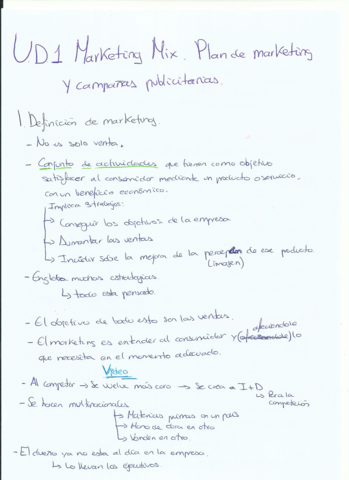 UD1 Marketing Mix. Plan de marketing
y campañas publicitarias.
1 Definición de marketing.
- No es solo venta.
- Conjunto de actividades que tienen como objetivo
satisfacer al consumidor mediante un producto o servicio,
con un beneficio económico.
Implica estrategias:
→ Conseguir los objetivos de la empresa
→ Aumentar las ventas
→ Incidir sobre la mejora de la percepción de ese producto
(imagen)
- Engloba muchas estrategias
↳ todo esta pensado.
- El objetivo de todo esto son las ventas.
- El marketing es entender al consumidor y ofreciendole lo
que necesita en el momento adecuado.
Video
- Al competir → Se vuelve mas caro → Se crea el I+D
↳ Para la
competición
- Se hacen multinacionales
→ Materias primas en un país
→ Mano de obra en otro
→ Venden en otro
- El dueño ya no esta al día en la empresa.
↳ Lo llevan los ejecutivos.